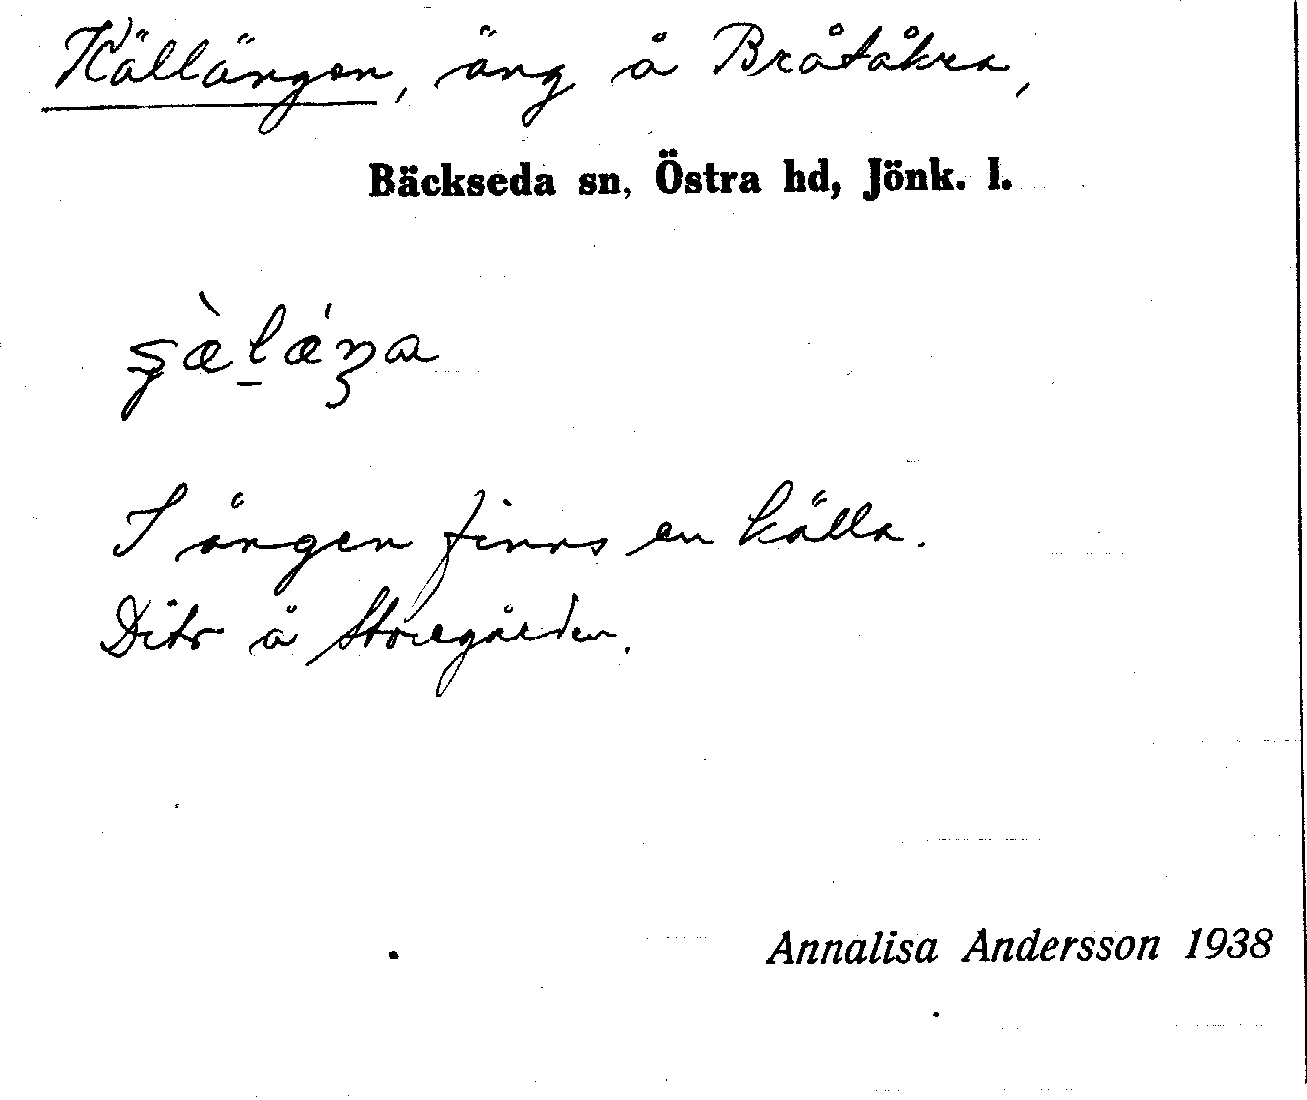 Källängen, äng å Bråtåkra,
Bäckseda sn, Östra hd, Jönk. l.
I ängen finns en källa.
Dito å Storegården.
Annalisa Andersson 1938